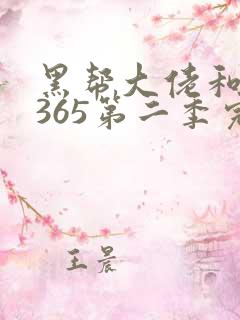 黑帮大佬和
365第二季完
王晨